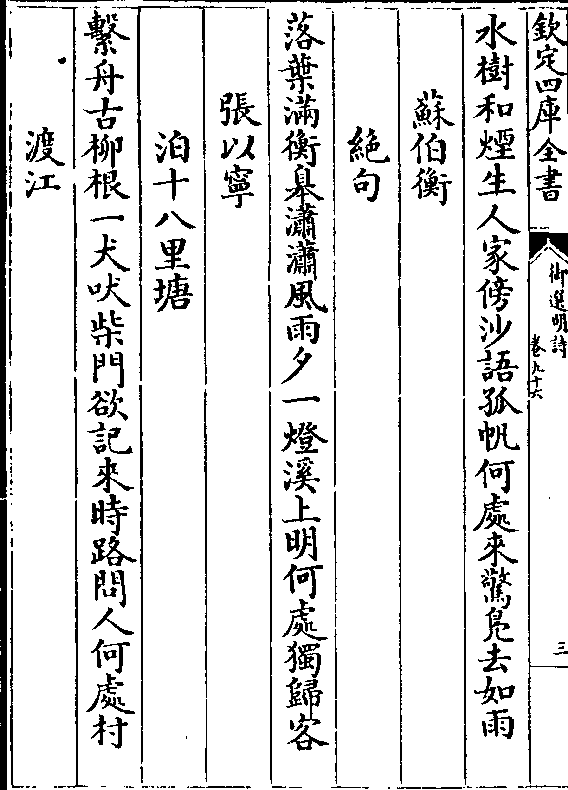 欽定四庫全書
御選明詩
卷九十六
三
水樹和煙生人家傍沙語孤帆何處來驚鳧去如雨
蘇伯衡
絶句
落葉滿衡臯瀟瀟風雨夕一燈溪上明何處獨歸客
張以寧
泊十八里塘
繫舟古柳根一犬吠柴門欲記來時路問人何處村
渡江